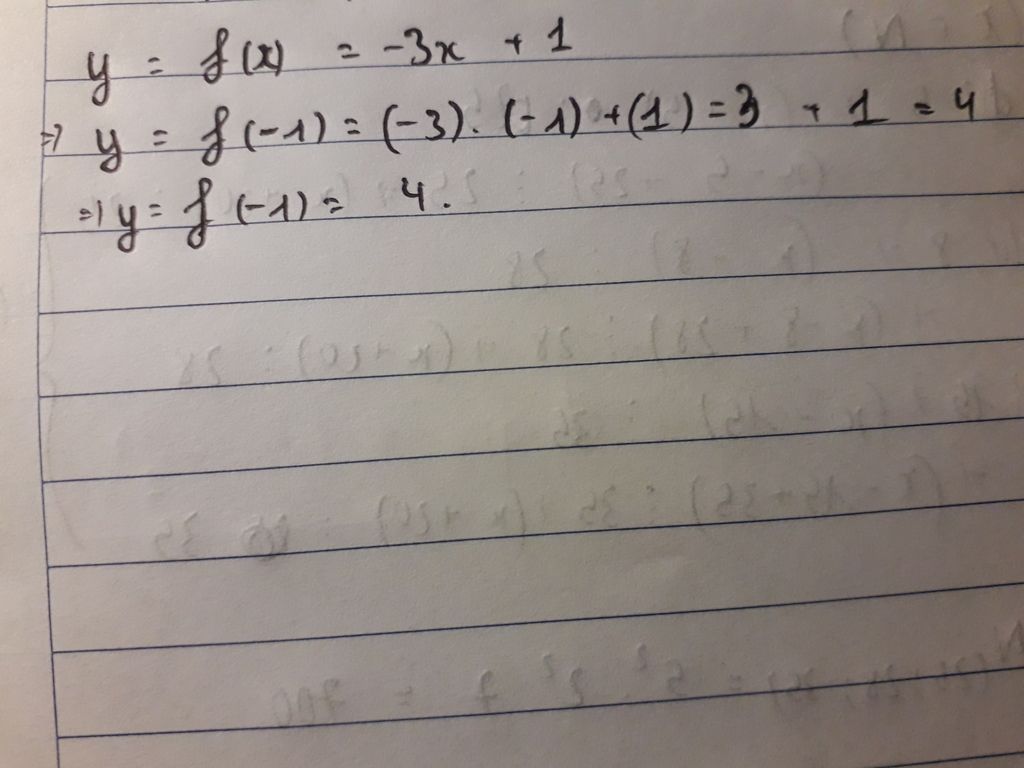 y = f(x) = -3x + 1
=> y = f(-1) = (-3). (-1) +(1) = 3 + 1 = 4
=> y = f(-1) = 4.